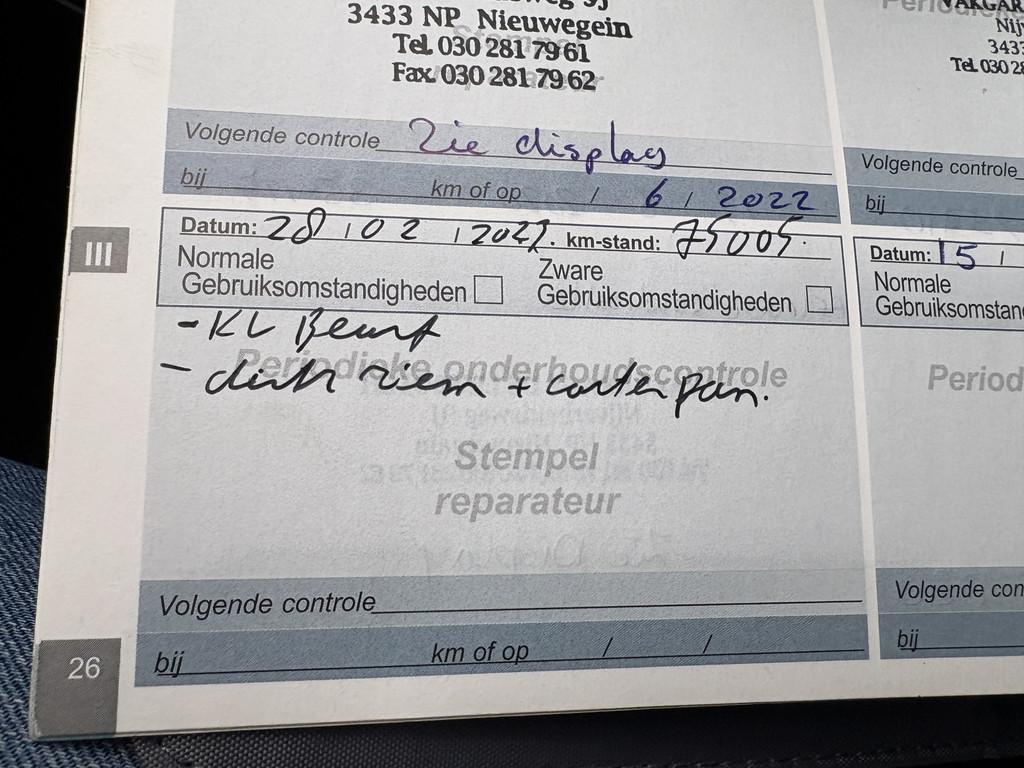 3433 NP Nieuwegein
Tel. 030 281 79 61
Fax. 030 281 79 62
Volgende controle Zie display
bij km of op / 6 / 2022
III
Datum: 28 / 02 / 2022. km-stand: 75005.
Normale
Gebruiksomstandigheden
Zware
Gebruiksomstandigheden
- KL Beurt
- distr riem + carterpan.
Periodieke onderhoudscontrole
Stempel
reparateur
Volgende controle
bij km of op / /
26
Nij
343
Tel. 030 28
Volgende controle
bij
Datum: 15 /
Normale
Gebruiksomstan
Period
Volgende con
bij